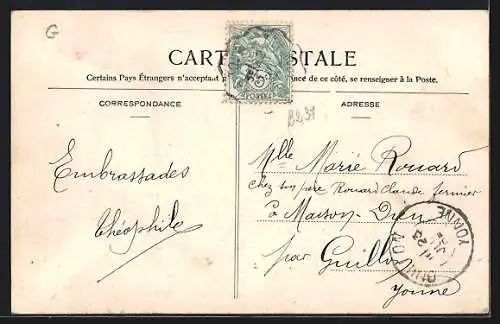 G
CARTE POSTALE
Certains Pays Étrangers n'acceptant p ce de ce côté, se renseigner à la Poste.
CORRESPONDANCE
ADRESSE
B2,31
Embrassades
théophile
Mlle Marie Rouard
chez son père Rouard Claude fermier
à Maison-Dieu
par Guillon
Yonne
GUILLON
YONNE